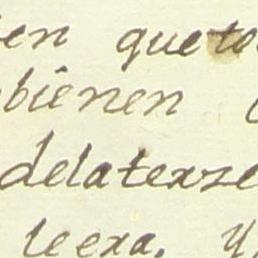 en que to
bienen
delaterze
leera. y